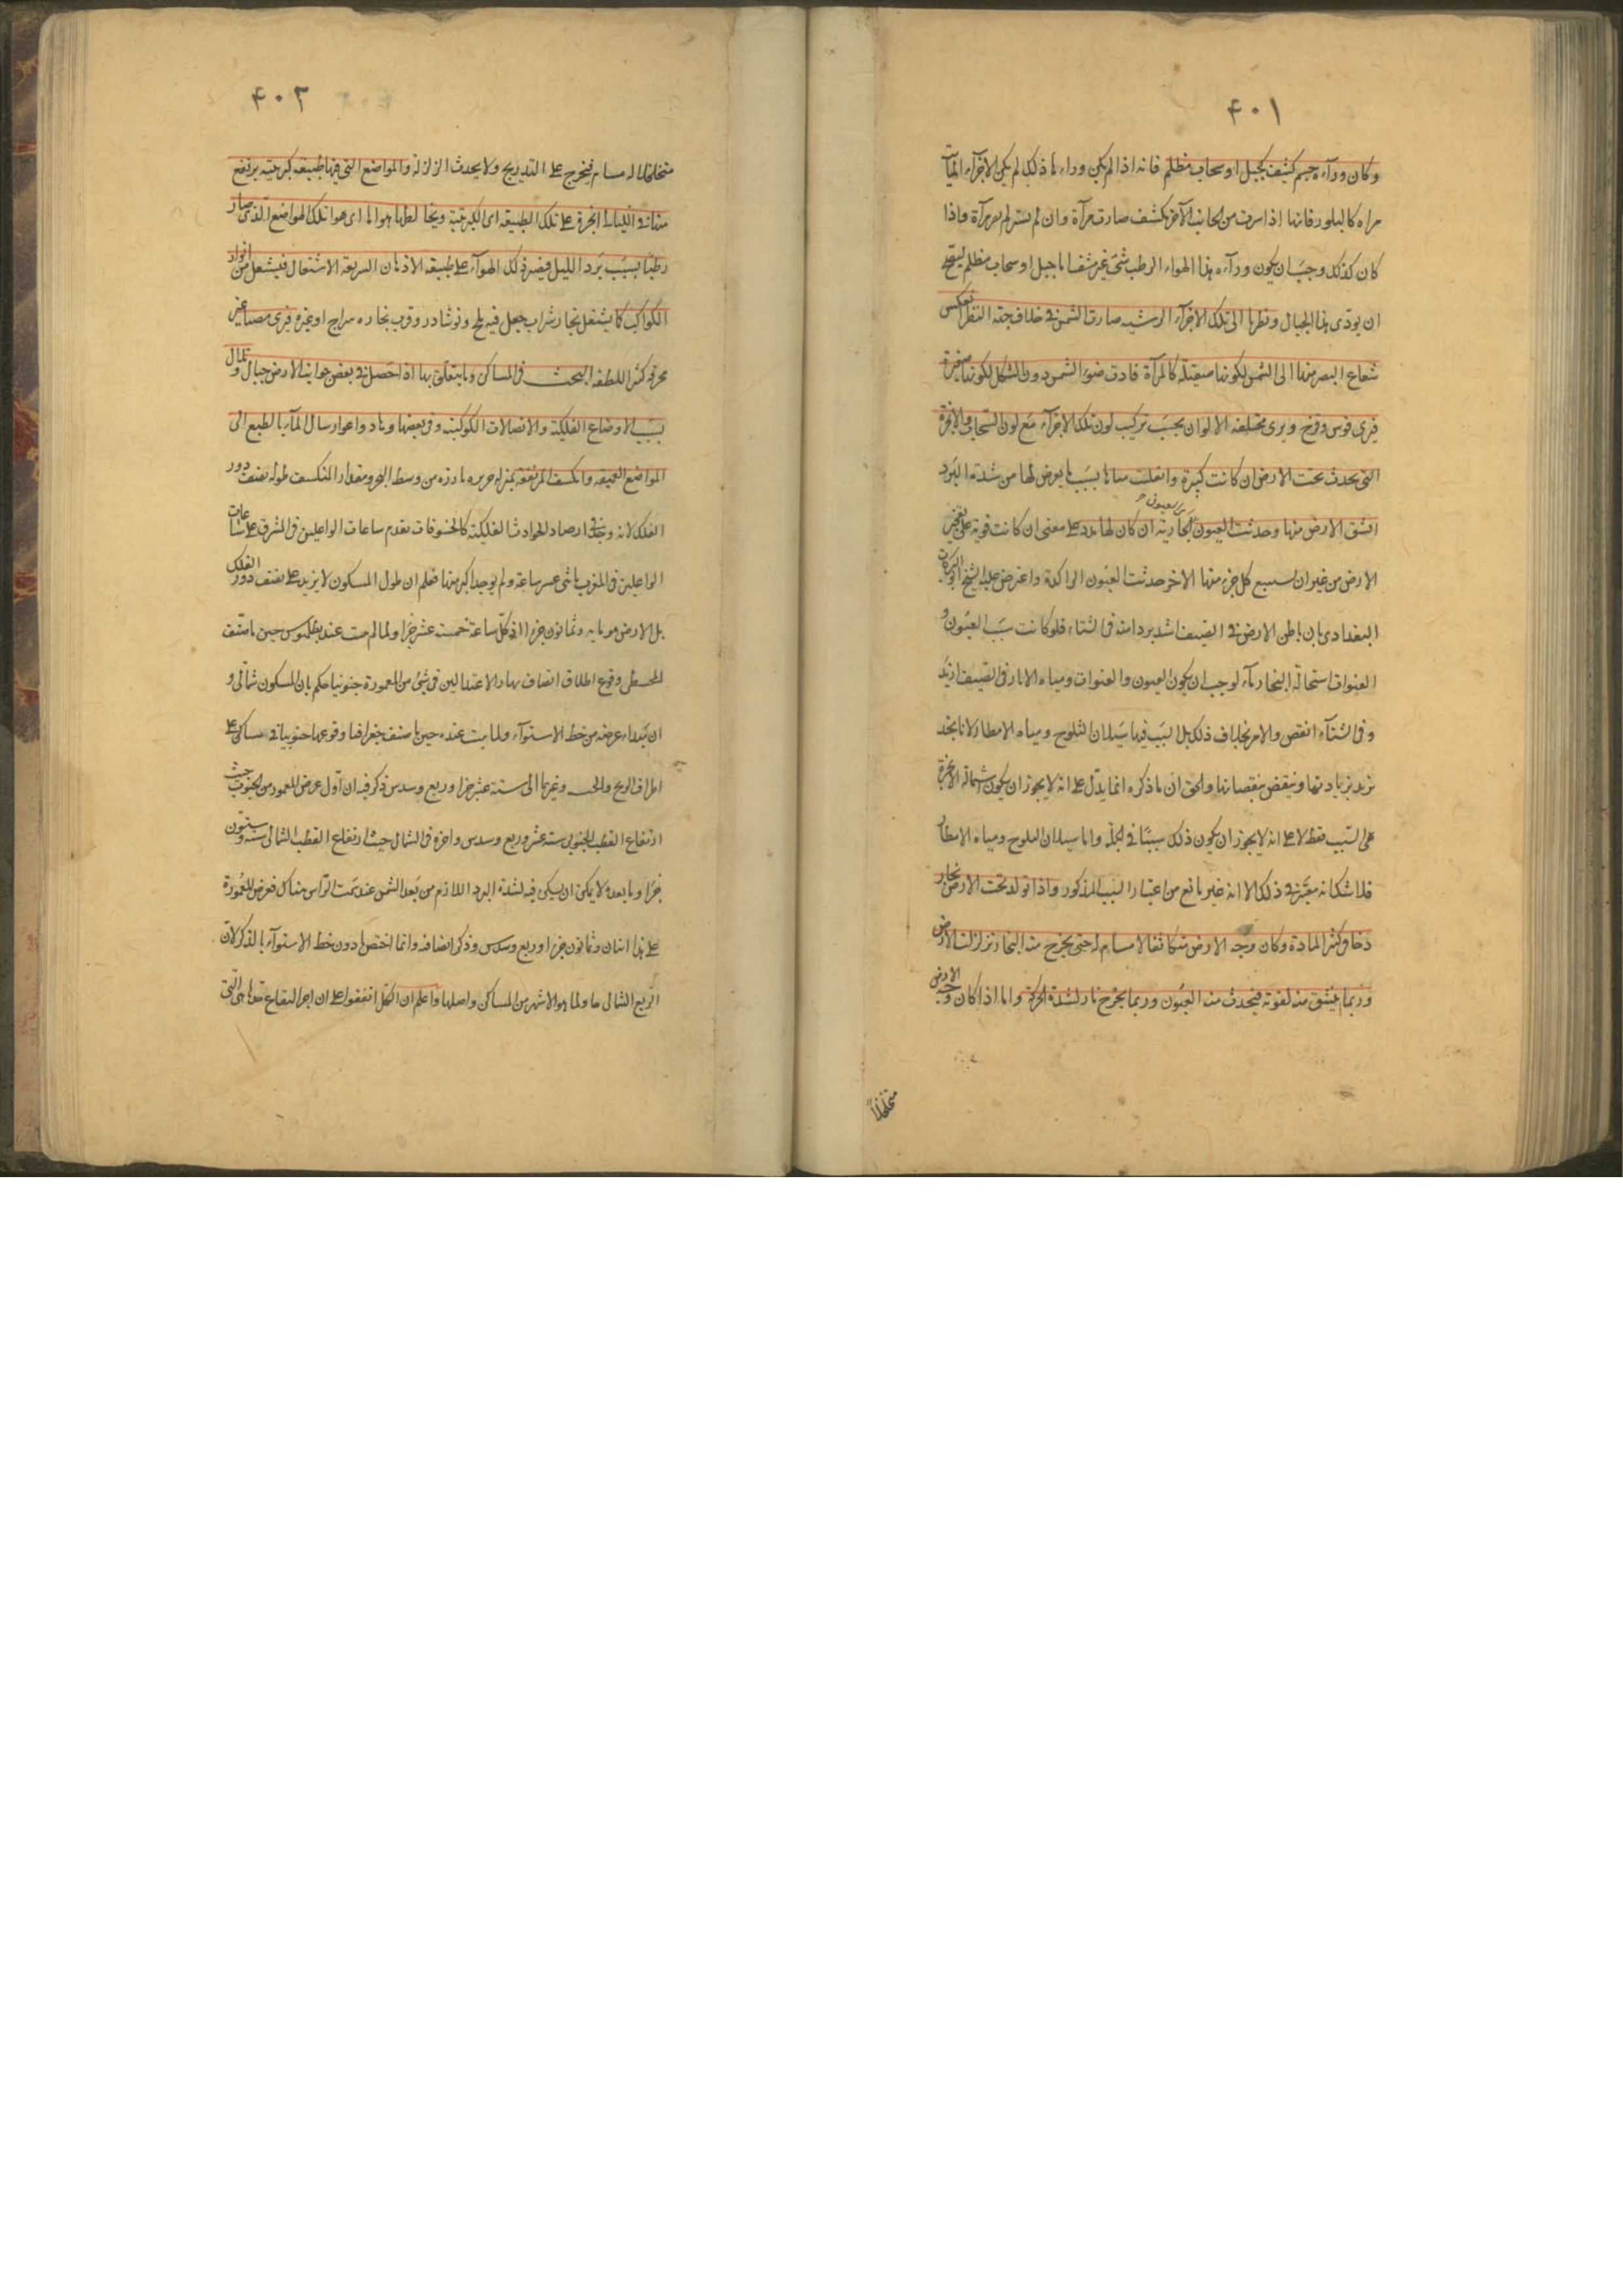 ۴۰۱
وكان ورآءه جسم كثيف كجبل او سحاب مظلم فانه اذا لم يكن وراءها ذلك لم يكن الاجزآء المائية
مراه كالبلور فانها اذا سترت من الجانب الآخر بكشف صارت مرآة وان لم يستر لم يصر مرآة واذا
كان كذلك وجب ان يكون ورآءه هذا الهواء الرطب شئ غير شفاف اما جبل او سحاب مظلم ليصح
ان يودى هذا الخيال ونظرنا الى تلك الاجزآء الرشيه صارت الشمس فى خلاف جهة النظر انعكس
شعاع البصر منها الى الشمس لكونها صقيلة كالمرآة فادت ضوء الشمس دون الشكل لكونها صغيرة
فيرى قوس وقزح ويرى مختلفة الالوان بحسب تركيب لون تلك الاجزآء مع لون السحاب والابخرة
التى يحدث تحت الارض ان كانت كثيرة وانقلبت مياها بسبب ما يعرض لها من شدة البرد
انشق الارض منها وحدثت العيون الجارية ان كان لها مدد على معنى ان كانت قوية على تفجير
الارض من غير ان يستتبع كل جزء منها الاخر حدثت العيون الراكدة واعترض عليه الشيخ ابو البركات
البغدادى بان باطن الارض فى الصيف اشد بردا منه فى الشتاء فلو كانت سبب العيون و
القنوات استحالة البخار مآء لوجب ان يكون العيون والقنوات ومياه الابار فى الصيف ازيد
وفى الشتآء انقص والامر بخلاف ذلك بل السبب فيها سيلان الثلوج ومياه الامطار لانا نجد
تزيد بزيادتها وينقص بنقصانها والحق ان ما ذكره انما يدل على انه لا يجوز ان يكون استحالة الابخرة
هى السبب فقط لا على انه لا يجوز ان يكون ذلك سببا فى الجملة واما سيلان الثلوج ومياه الامطار
فلا شك انه معتبر فى ذلك الا انه غير مانع من اعتبار السبب المذكور واذا تولد تحت الارض بخار
دخانى كثير المادة وكان وجه الارض متكاثفا لا مسام له حتى يخرج منه البخار تزلزلت الارض
وربما ينشق منه لقوته فيحدث منه العيون وربما يخرج نار لشدة الحركة واما اذا كان وجه الارض
متخلخلاً
۴۰۲
متخلخلا له مسام فيخرج على التدريج ولا يحدث الزلزلة والمواضع التى فيها طبيعة كبريتية يرتفع
منها فى الليالى ابخرة على تلك الطبيعة اى الكبريتية ويخالطها هواها اى هوا تلك المواضع الذى صار
رطبا بسبب برد الليل فيصير ذلك الهوآء على طبيعة الادهان السريعة الاشتعال فيشتعل من انوار
الكواكب كما يشتعل بخار شراب جعل فيه ملح ونوشادر وقرب بخاره سراج او غيره فيرى مصباح غير
محرق كثير اللطف البحث فى المساكن وما يتعلق بها اذا حصل فى بعض جوانب الارض جبال وتلال
بسبب الاوضاع الفلكية والاتصالات الكوكبية وفى بعضها وهاد واغوار سال المآء بالطبع الى
المواضع العميقة وانكشف المرتفعة بمنزلة جزيره بارزه من وسط البحر ومقدار المنكشف طوله نصف دور
الفلك لانه وجد فى ارصاد الحوادث الفلكية كالخسوفات تقدم ساعات الواغلين فى المشرق على ساعات
الواغلين فى المغرب باثنى عشر ساعة ولم يوجد اكثر منها فعلم ان طول المسكون لا يزيد على نصف دور الفلك
بل الارض هو مايه وثمانون جزءا اذ كل ساعة خمسة عشر جزءا ولما لم يثبت عند بطلميوس حين ما صنف
المجسطى وقوع اطلاق انصاف نهار الاعتدالين فى شئ من المعمورة جنوبيا حكم بان المسكون شمالى و
ان مبداء عرضه من خط الاستوآء ولما ثبت عنده حين ما صنف جغرافيا وقوعها جنوبيا فى مساكن على
اطراف الزنج والحبشه وغيرهما الى ستة عشر جزءا وربع وسدس ذكر فيه ان اول عرض المعمور من الجنوب حيث
ارتفاع القطب الجنوبى ستة عشر وربع وسدس واخره فى الشمال حيث ارتفاع القطب الشمالى ستة وستون
جزءا وما بعده لا يمكن ان يسكن فيه لشدة البرد اللازم من بعد الشمس عند سمت الراس هناك فعرض المعمورة
على هذا اثنان وثمانون جزءا وربع وسدس وذكر انصافه وانما اختص دون خط الاستوآء بالذكر لان
الربع الشمالى ما ولما هو الاشهر من المساكن واصلها واعلم ان الكل اتفقوا على ان احر البقاع صيفا هى التى